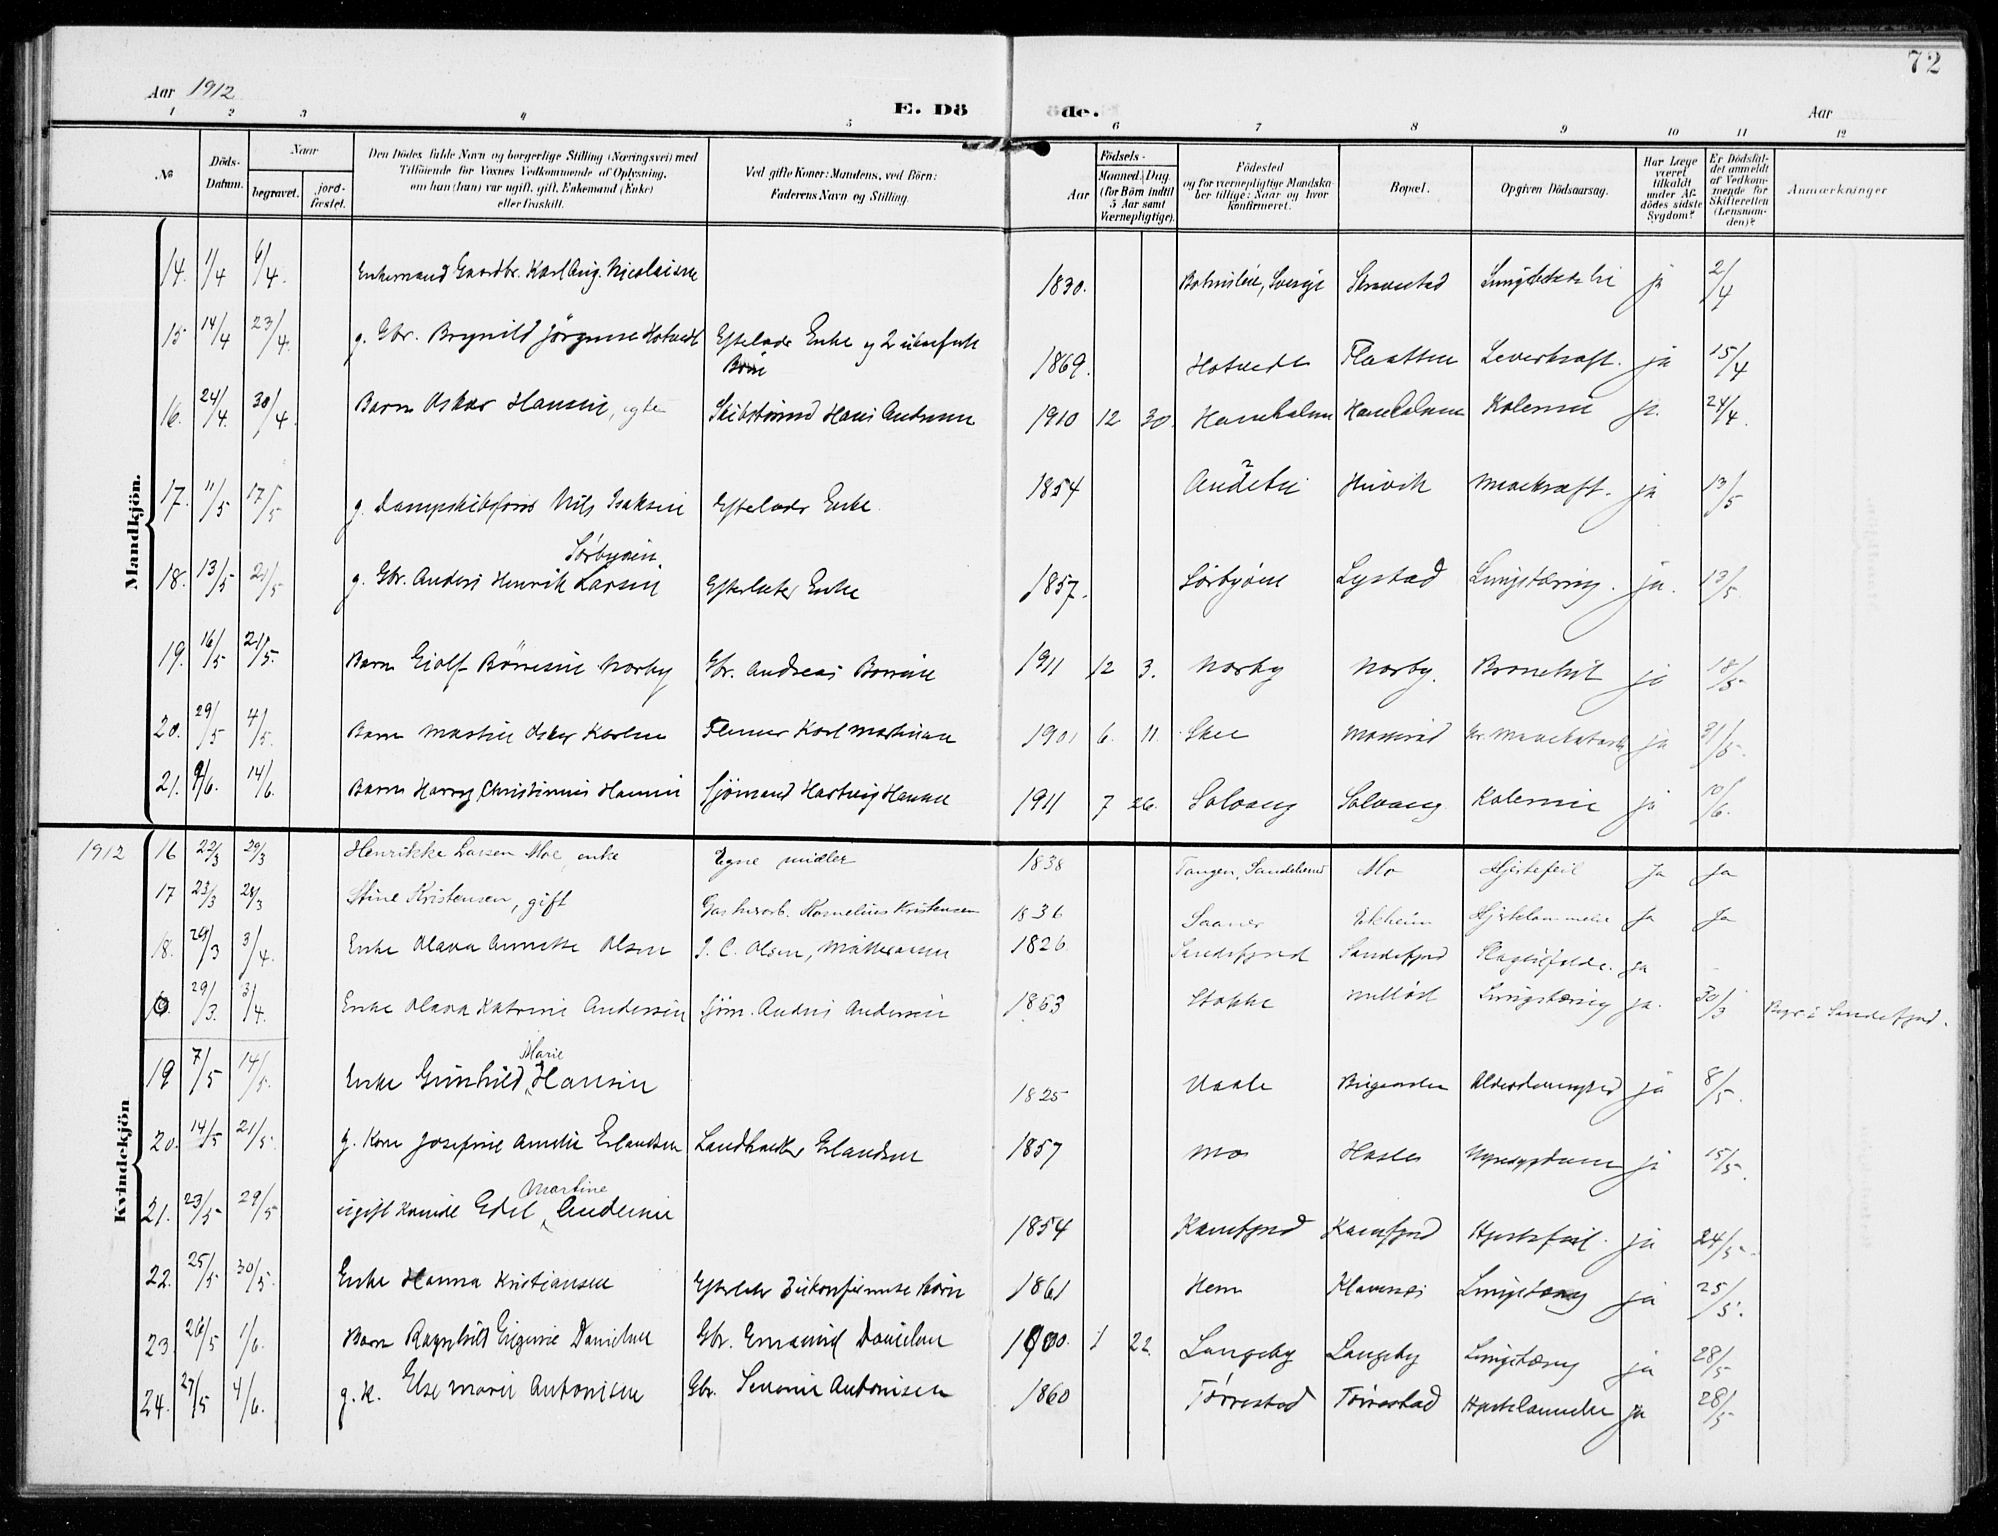 72
Aar 1912
E. Dö de.
Aar
1 2 3 4 5 6 7 8 9 10 11 12
No
Döds-Datum.
Naar
begravet.
jord-fæstet.
Den Dödes fulde Navn og borgerlige Stilling (Næringsvei) med Tilföiende for Voxnes Vedkommende af Oplysning, om han (hun) var ugift, gift, Enkemand (Enke) eller fraskilt.
Ved gifte Koner: Mandens, ved Börn: Faderens Navn og Stilling.
Födsels-
Aar
Maaned. Dag. (for Börn indtil 5 Aar samt Værnepligtige).
Födested og for værnepligtige Mandska-ber tillige: Naar og hvor konfirmeret.
Bopæl.
Opgiven Dödsaarsag.
Har Læge været tilkaldt under Af-dödes sidste Sygdom?
Er Dödsfal-det anmeldt af Vedkom-mende for Skifteretten (Lensman-den)?
Anmærkninger
Mandkjön.
14. 1/4 6/4. Enkemand Gaardbr. Karl Aug. Nicolaisen 1830. Sverge ja 2/4
15 14/4 23/4. g. Gbr. Brynild Jörgensen Hotvedt Efterlader Enke og 2 Börn 1869. Hotvedt Flaatten ja 15/4
16. 24/4. 30/4. Barn Oskar Hansen, egte Hans Andersen 1910 12 30. ja. 24/4.
17. 11/5 17/5 g. Nils Isaksen Efterlader Enke. 1854 Huvik Mavekræft. ja 13/5
18. 13/5 21/5 g. Gbr. Anders Henrik Larsen Sörbyöen Efterlater Enke 1857. Sörbyöen Lystad Lungetæring. ja. 13/5.
19. 16/5 21/5. Barn Eiolf Börresen Norby Gbr. Andreas Börresen 1911 12 3. Norby Norby. Bronchit ja 18/5-
20. 29/5 4/5. Barn Martin Oskar Karlsen Karl Martinsen 1901 6. 11. Skee ja 31/5-
21. 9/6. 14/6. Barn Harry Christinius Hansen Sjömand Hartvig Hansen 1911 7 26. Solvang Solvang. Kolerine ja 10/6.
Kvindekjön
1912 16 22/3 29/3 Henrikke Larsen Moe, enke Egne midler 1838 Tangen, Mo Hjertefeil Ja Ja
17 23/3 28/3 Stine Kristensen, gift Kornelius Kristensen 1836 Ekheim Hjertelammelse Ja Ja
18. 29/3 3/4. Enke Olava Annette Olsen J. C. Olsen, 1826 Sandefjord Sandefjord Slagtilfælde. ja
29/3. 3/4. Enke Olava Katrine Andersen Sjöm. Anders Andersen 1863 Stokke Lungetæring ja. 30/3 Begr. i Sandefjord.
19 7/5 14/5. Enke Gunhild Marie Hansen 1825 Vaale Alderdomssvaghed ja 8/5.
20. 14/5 21/5. g. Kone Josefine Amelie Erlandsen Landhandler Erlandsen 1857 Mo Hasle Nyresygdom ja 15/5.
21. 23/5 29/5 ugift Kvinde Edel Martine Andersen 1854 Kamfjord Kamfjord Hjertefeil. ja 24/5-
22. 25/5 30/5. Enke Hanna Kristiansen Efterlater 3 ukonfirmerte börn 1861 Hem Klavenes Lungetæring ja 25/5.
23. 26/5 1/6. Barn Ragnhild Eugenie Danielsen Gbr. Danielsen 1900. 1 22. Langeby Langeby Lungetæring ja 28/5
24. 27/5 4/6. g. K. Else Marie Antonisen Gbr. Antonisen 1860 Törrestad Törrestad Hjertelammelse ja 28/5